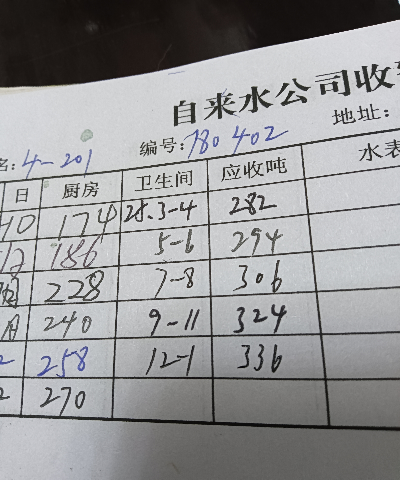 自来水公司收
名:4-201 编号:780402 地址:
日 厨房 卫生间 应收吨 水表
10 174 25.3-4 282
12 186 5-6 294
228 7-8 306
月 240 9-11 324
2 258 12-1 336
2 270